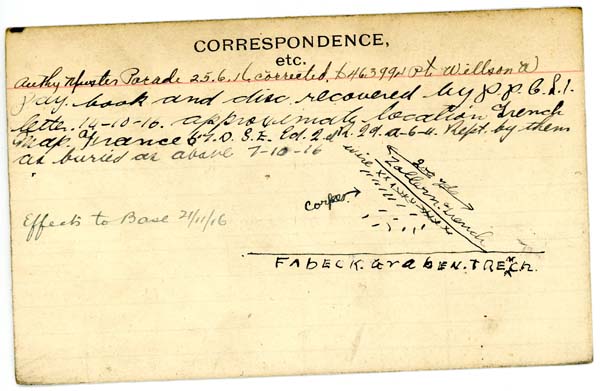 CORRESPONDENCE,
etc.
Authy Muster Parade 25.6.16 corrected, 463992 Pt. Willson W
pay book and disc recovered by P.P.C.L.I.
letter. 14-10-16. approximate location Trench
Map. France 57.D. S.E. Ed. 2. R. 29. a-6-4. Rept. by them
as buried as above 7-10-16
200 yds
Zollern Trench
wire xxxxxxxxx
corpse
Effects to Base 21/11/16
FABECK. GraBEN. TRENCh.